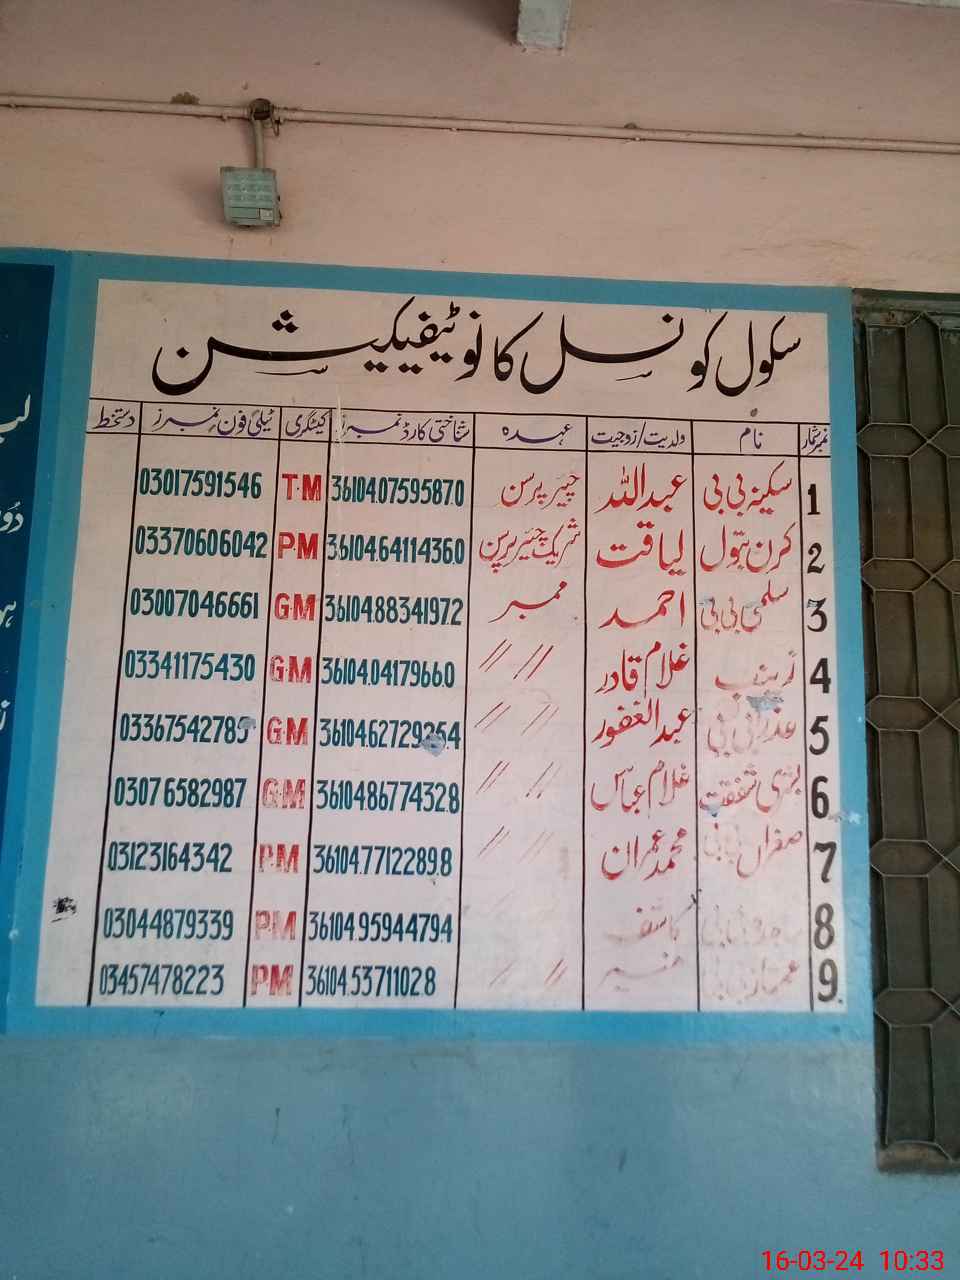 سکول کونسل کا نوٹیفیکیشن
نمبر شمار نام ولدیت/زوجیت عہدہ شناختی کارڈ نمبرز کیٹگری ٹیلی فون نمبرز دستخط
1 سکینہ بی بی عبداللہ چیئر پرسن 36104.0759587.0 T.M 03017591546
2 کرن بتول لیاقت شریک چیئر پرسن 36104.6411436.0 PM 03370606042
3 سلمیٰ بی بی احمد ممبر 36104.8834197.2 G.M 03007046661
4 زینب غلام قادر // // 36104.0417966.0 G.M 03341175430
5 عذرا بی بی عبدالغفور // // G.M
6 بشریٰ شفقت غلام عباس // // 36104.8677432.8 G.M 03076582987
7 صفراں بی بی محمد عمران // // 36104.7712289.8 P.M 03123164342
8 بی بی کاشف 36104.9594479.4 P.M 03044879339
9 بی بی منیر // // 36104.5371102.8 PM 03457478223
16-03-24 10:33